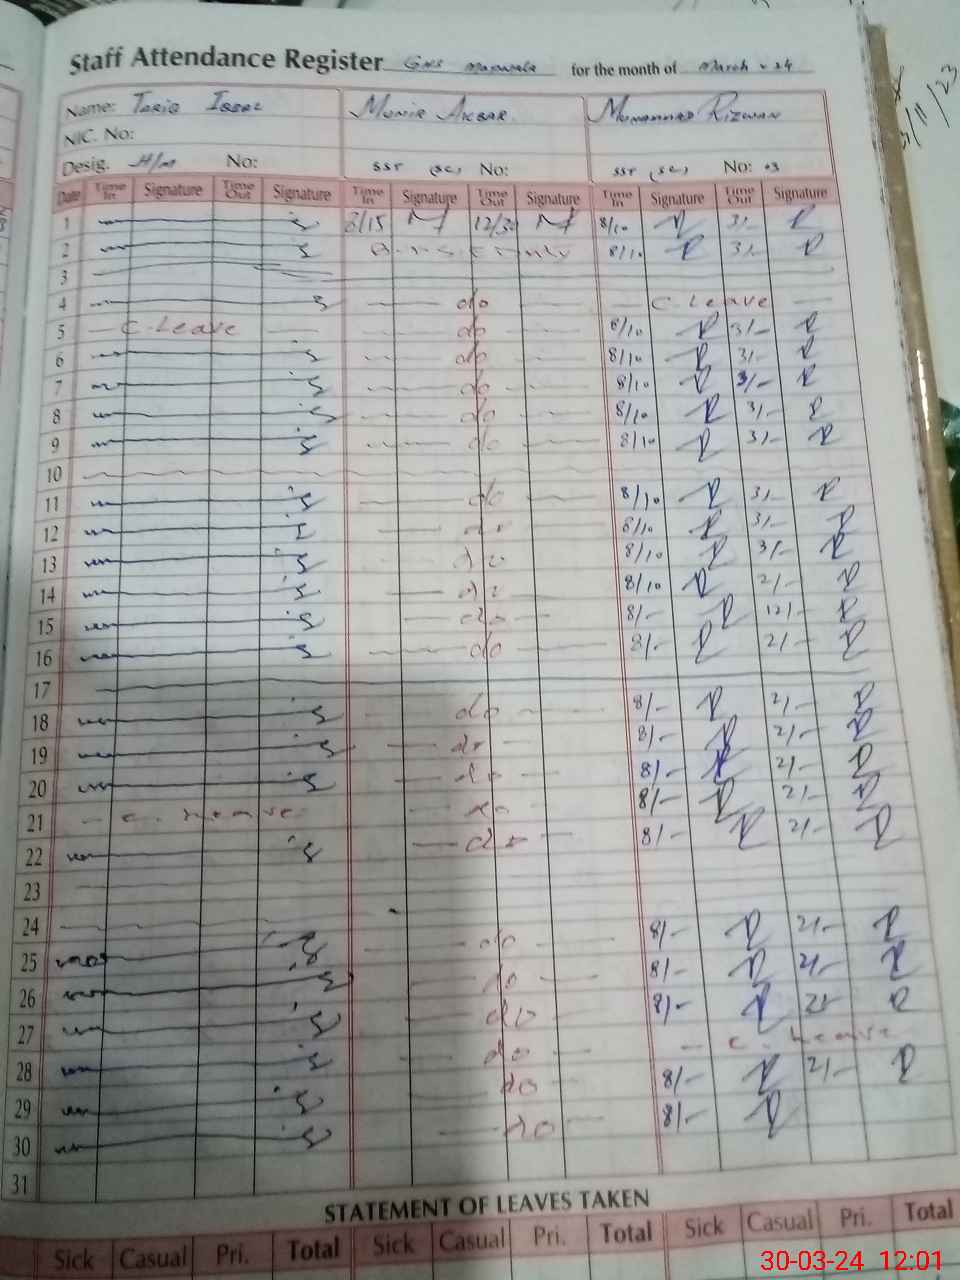 Staff Attendance Register GMS for the month of March - 24
Name: Tariq Iqbal Munir Akbar. Muhammad Rizwan
NIC. No:
Desig. H/M No: SST (SC) No: SST (SC) No: 03
Date Time In Signature Time Out Signature Time In Signature Time Out Signature Time In Signature Time Out Signature
1 8/15 M 12/30 M 8/10 R 3/- R
2 8/10 R 3/- R
3
4 do C. Leave
5 C. Leave do 8/10 R 3/- R
6 do 8/10 R 3/- R
7 do 8/10 R 3/- R
8 do 8/10 R 3/- R
9 do 8/10 R 3/- R
10
11 do 8/10 R 3/- R
12 do 8/10 R 3/- R
13 do 8/10 R 3/- R
14 do 8/10 R 2/- R
15 do 8/- R 12/- R
16 do 8/- R 2/- R
17
18 do 8/- R 2/- R
19 do 8/- R 2/- R
20 do 8/- R 2/- R
21 C. Leave do 8/- R 2/- R
22 do 8/- R 2/- R
23
24
25 do 8/- R 2/- R
26 do 8/- R 2/- R
27 do 8/- R 2/- R
28 do C. Leave
29 do 8/- R 2/- R
30 do 8/- R
31
STATEMENT OF LEAVES TAKEN
Sick Casual Pri. Total Sick Casual Pri. Total Sick Casual Pri. Total
30-03-24 12:01